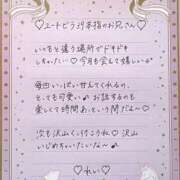 ♡ユートピア29本指のお兄さん♡
いつもと違う場所でドキドキ
しちゃたい…♡今月も会えて嬉しい♪
毎回いっぱい甘えてくれるの、
とても可愛い♪お話するのも
楽しくて時間あっという間だよ〜♡
次も沢山くっけこうね♡沢山
いじめちゃいたいな…♡
♡れい♡